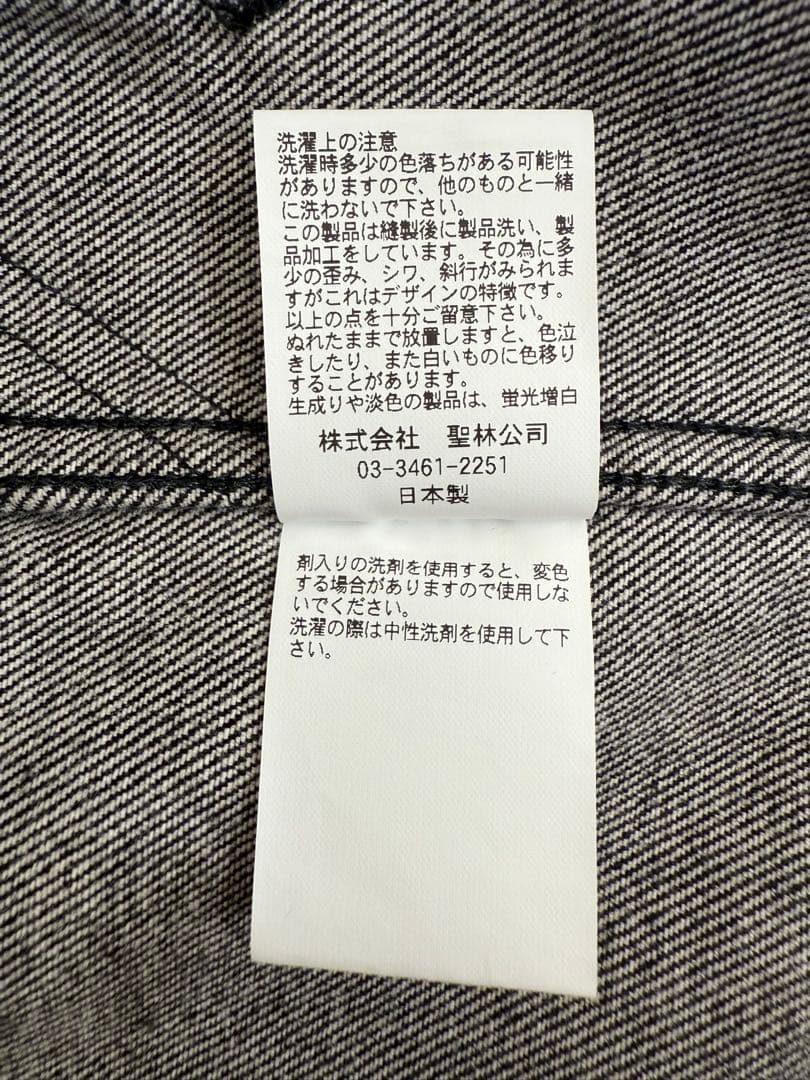 洗濯上の注意
洗濯時多少の色落ちがある可能性
がありますので、他のものと一緒
に洗わないで下さい。
この製品は縫製後に製品洗い、製
品加工をしています。その為に多
少の歪み、シワ、斜行がみられま
すがこれはデザインの特徴です。
以上の点を十分ご留意下さい。
ぬれたままで放置しますと、色泣
きしたり、また白いものに色移り
することがあります。
生成りや淡色の製品は、蛍光増白
株式会社 聖林公司
03-3461-2251
日本製
剤入りの洗剤を使用すると、変色
する場合がありますので使用しな
いでください。
洗濯の際は中性洗剤を使用して下
さい。